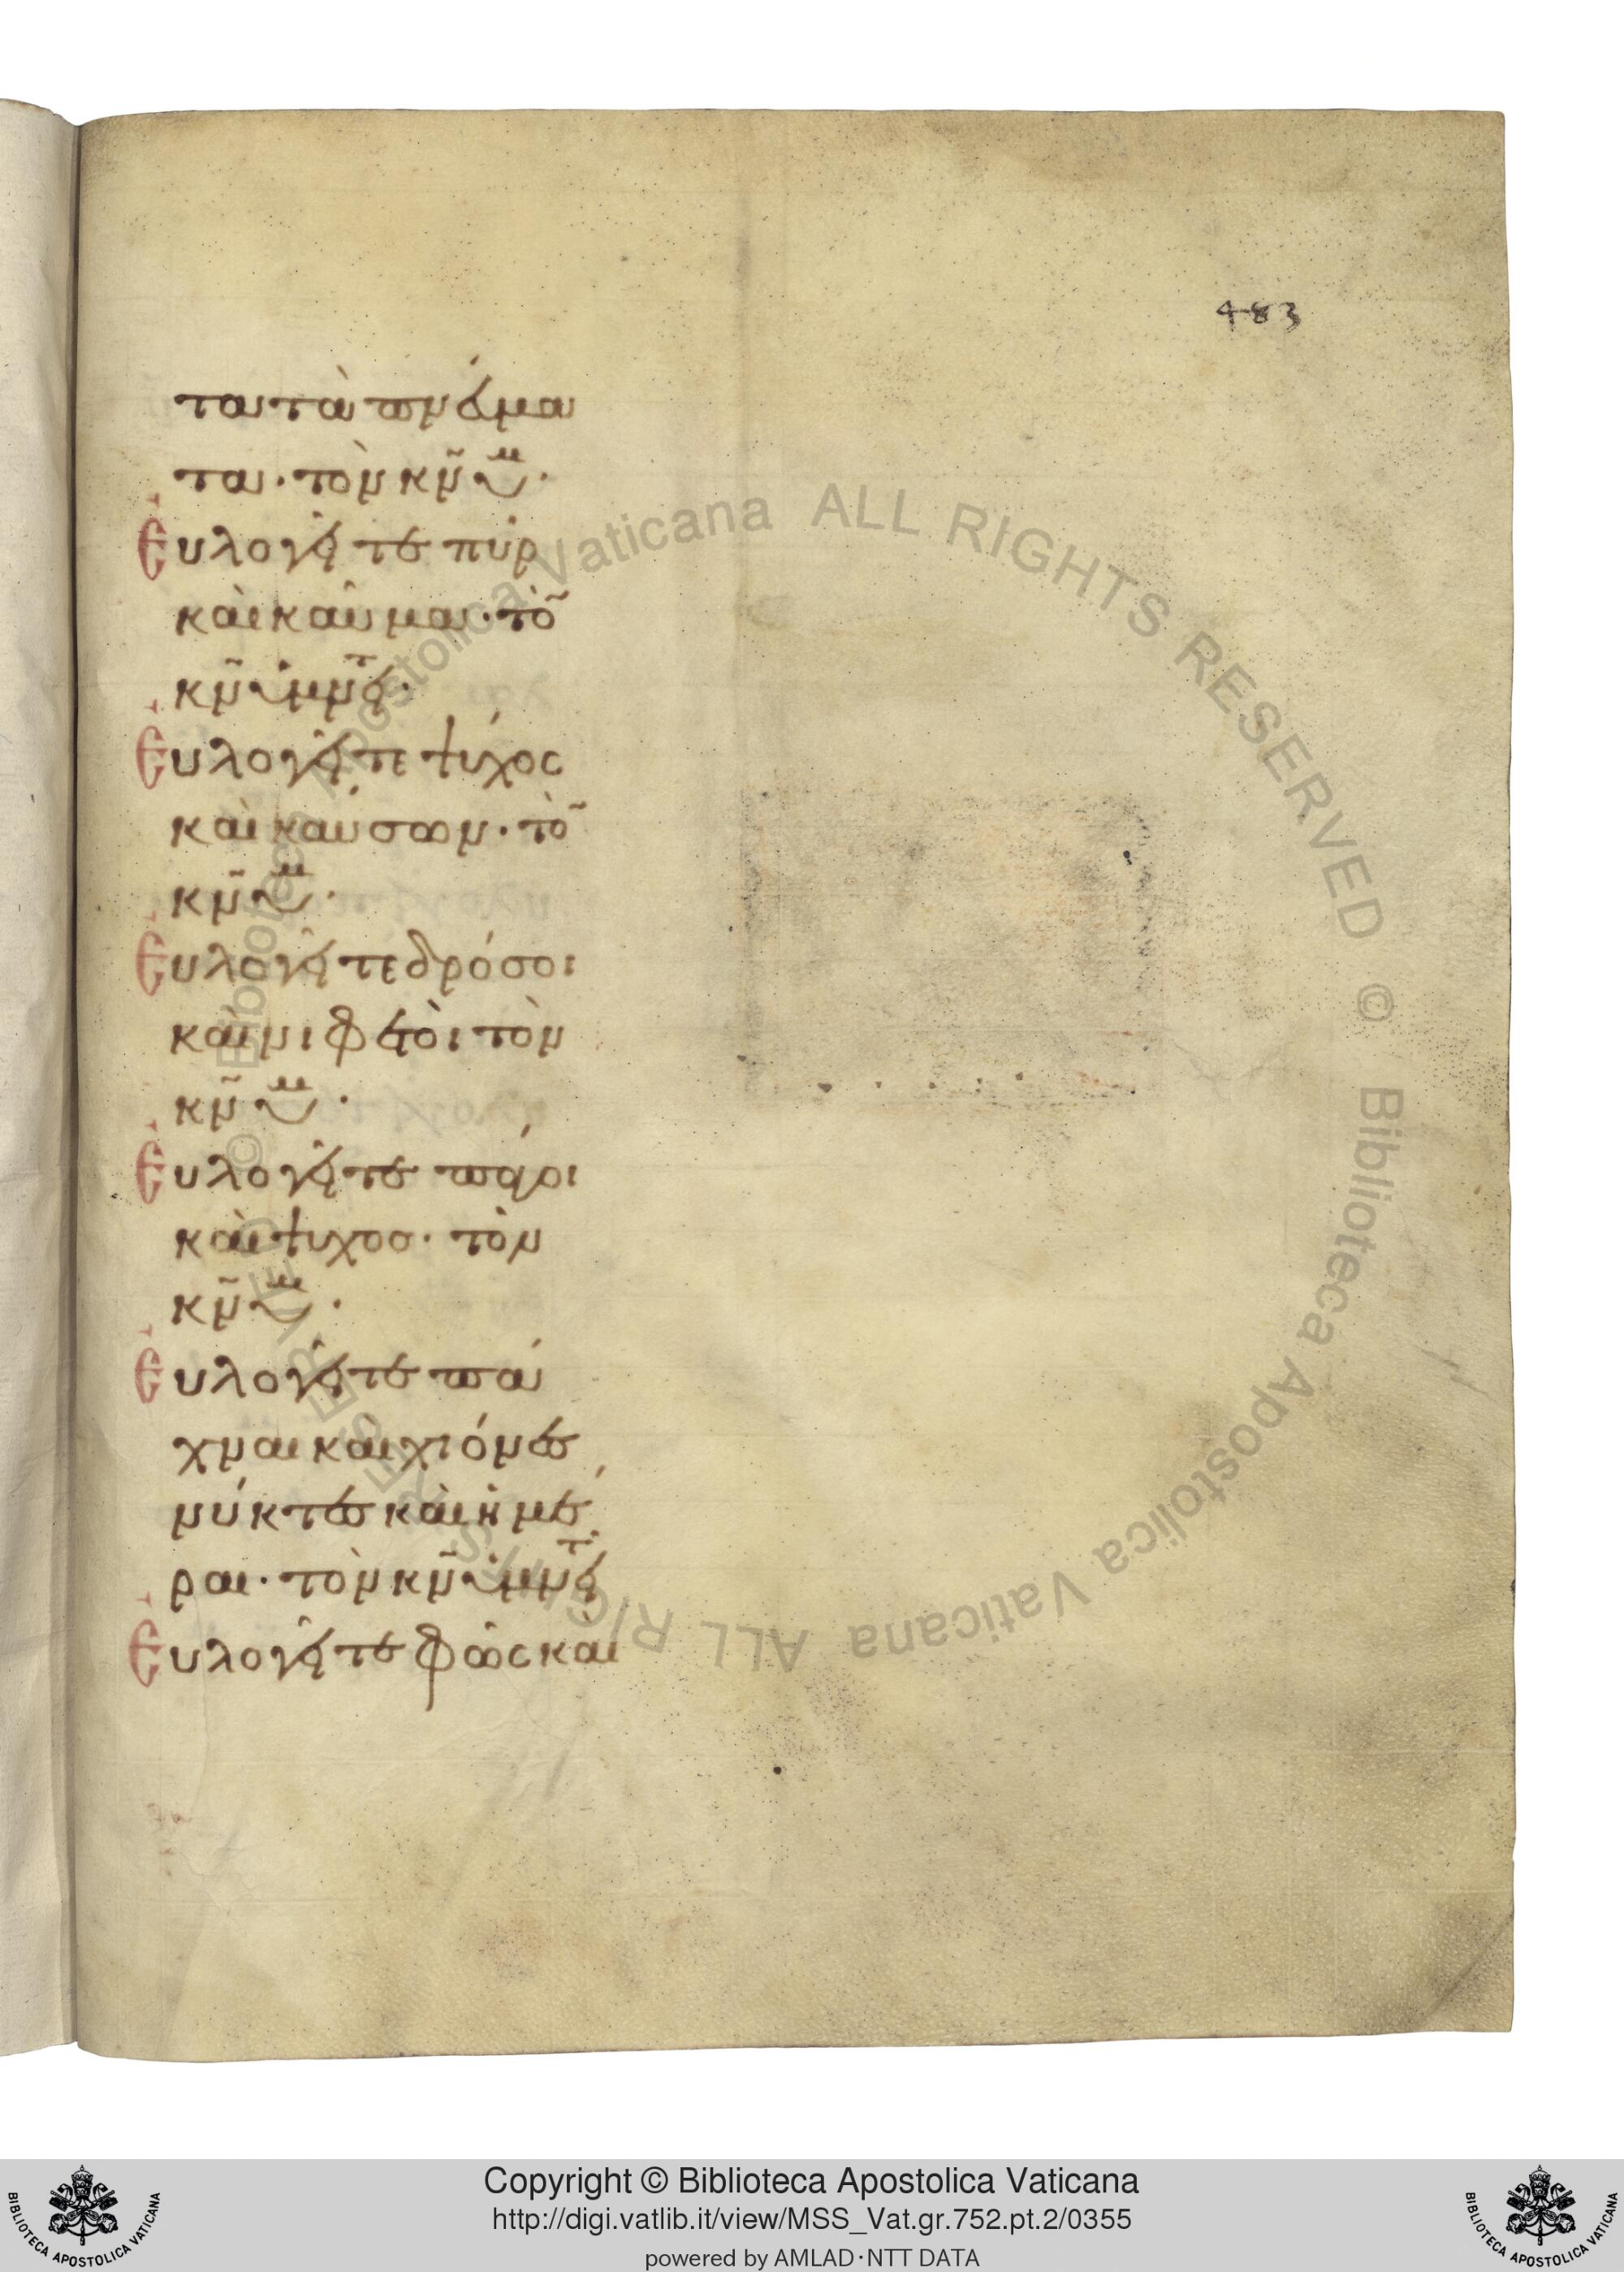 483
τα τὰ πνεύμα
τα· τὸν κν̄ ὑμ·
Εὐλογεῖτε πῦρ
καὶ καῦμα· τὸ̄
κν̄ ὑμνητ·
Εὐλογεῖτε ψύχος
καὶ καύσων· τὸ̄
κν̄ ὑμ·
Εὐλογεῖτε δρόσοι
καὶ νιφετοὶ τὸν
κν̄ ὑμ·
Εὐλογεῖτε πάγοι
καὶ ψυχοσ· τὸν
κν̄ ὑμ·
Εὐλογεῖτε πά
χναι καὶ χιόνεσ
νύκτεσ καὶ ἡμέ
ραι· τὸν κν̄ ὑμνητ
Εὐλογεῖτε φῶς καὶ
© Biblioteca Apostolica Vaticana ALL RIGHTS RESERVED © Biblioteca Apostolica Vaticana ALL RIGHTS RESERVED
Copyright © Biblioteca Apostolica Vaticana
http://digi.vatlib.it/view/MSS_Vat.gr.752.pt.2/0355
powered by AMLAD·NTT DATA
BIBLIOTECA APOSTOLICA VATICANA
BIBLIOTECA APOSTOLICA VATICANA